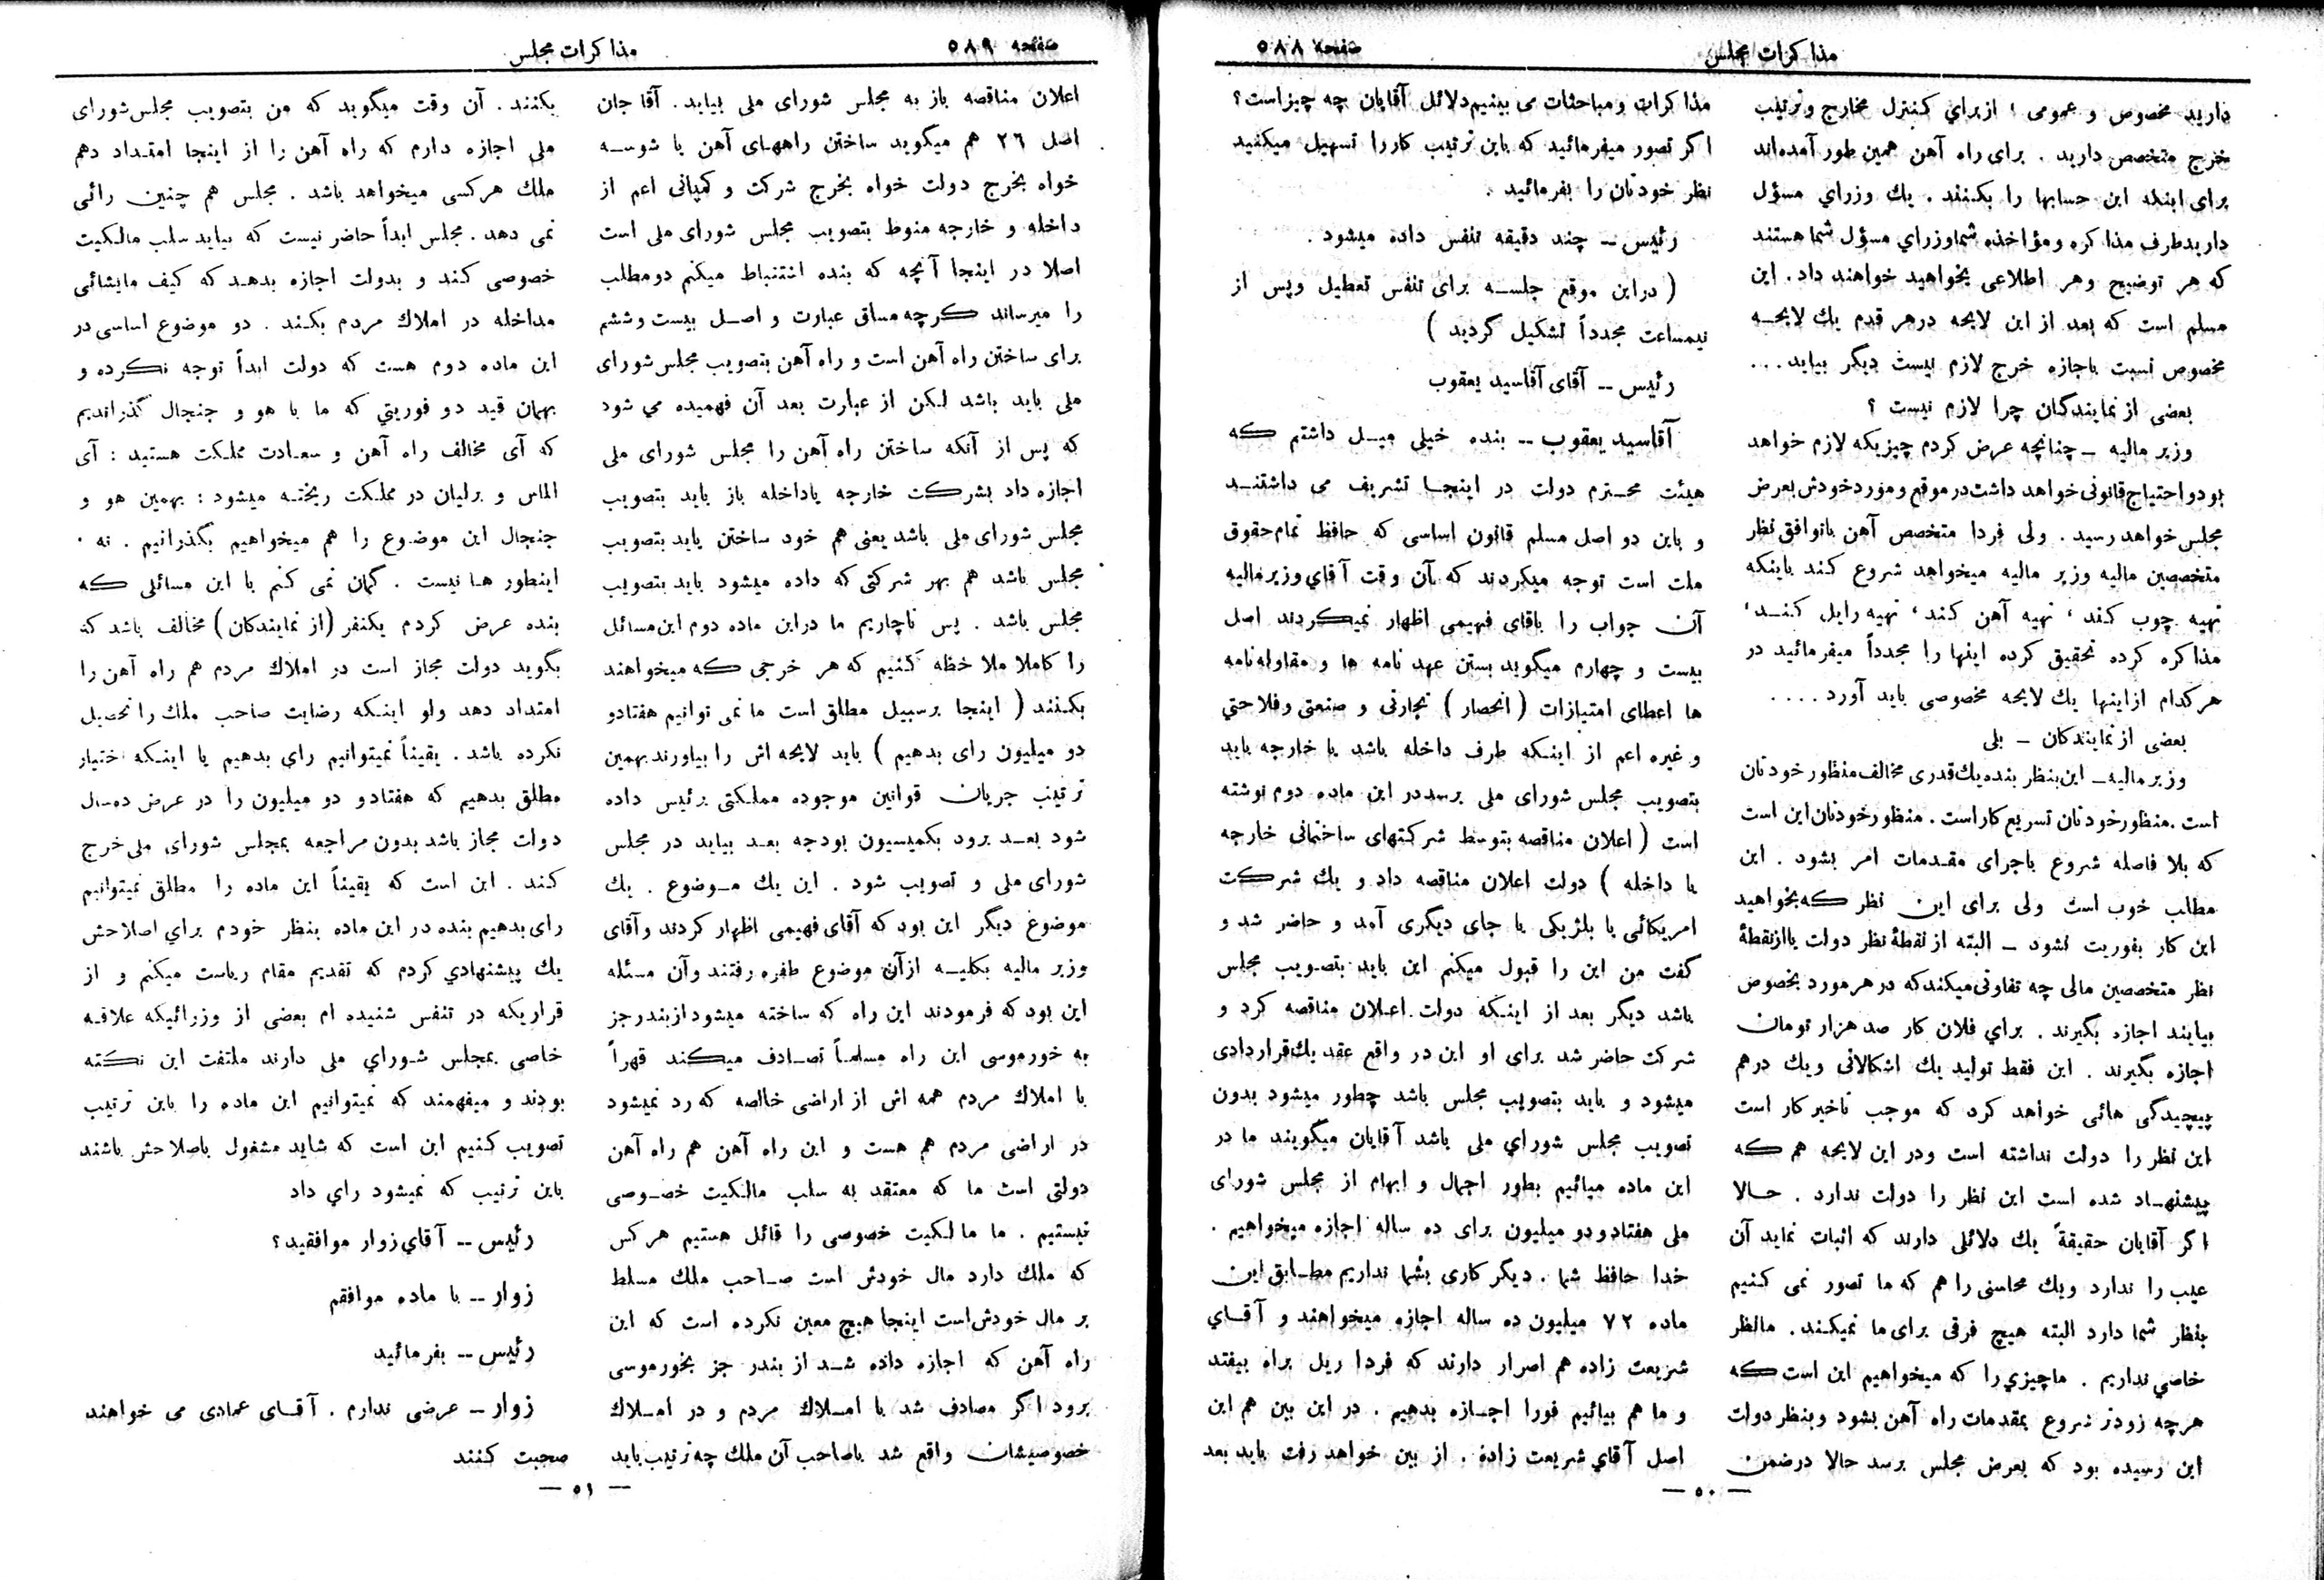 مذاکرات مجلس
صفحه ۵۸۸
دارید مخصوص و عمومی ؛ ازبرای کنترل مخارج وترتیب
خرج متخصص دارید . برای راه آهن همین طور آمده‌اند
برای اینکه این حسابها را بکنند . یك وزرای مسؤل
دارید طرف مذاکره ومؤاخذه شما وزرای مسؤل شما هستند
که هر توضیح وهر اطلاعی بخواهید خواهند داد . این
مسلم است که بعد از این لایحه درهر قدم یك لایحه
مخصوص نسبت باجازه خرج لازم نیست دیگر بیاید ...
بعضی از نمایندگان چرا لازم نیست ؟
وزیر مالیه ـ چنانچه عرض کردم چیزیکه لازم خواهد
بود و احتیاج قانونی خواهد داشت در موقع و مورد خودش بعرض
مجلس خواهد رسید . ولی فردا متخصص آهن باتوافق نظر
متخصصین مالیه وزیر مالیه میخواهد شروع کند باینکه
تهیه چوب کند ، تهیه آهن کند ، تهیه رایل کند ،
مذاکره کرده تحقیق کرده اینها را مجدداً میفرمائید در
هرکدام ازاینها یك لایحه مخصوصی باید آورد ....
بعضی از نمایندکان ـ بلی
وزیر مالیه ـ این بنظر بنده یك قدری مخالف منظور خودتان
است . منظور خودتان تسریع کار است . منظور خودتان این است
که بلا فاصله شروع باجرای مقدمات امر بشود . این
مطلب خوب است ولی برای این نظر که بخواهید
این کار بفوریت نشود ـ البته از نقطهٔ نظر دولت یااز نقطهٔ
نظر متخصصین مالی چه تفاوتی میکند که در هر مورد بخصوص
بیایند اجازه بگیرند . برای فلان کار صد هزار تومان
اجازه بگیرند . این فقط تولید یك اشکالاتی ویك درهم
پیچیدگی هائی خواهد کرد که موجب تاخیر کار است
این نظر را دولت نداشته است ودر این لایحه هم که
پیشنهاد شده است این نظر را دولت ندارد . حالا
اگر آقایان حقیقةً یك دلائلی دارند که اثبات نماید آن
عیب را ندارد ویك محاسنی را هم که ما تصور نمی کنیم
بنظر شما دارد البته هیچ فرقی برای ما نمیکند . مانظر
خاصی نداریم . ماچیزی را که میخواهیم این است که
هرچه زودتر شروع بمقدمات راه آهن بشود وبنظر دولت
این رسیده بود که بعرض مجلس برسد حالا درضمن
مذاکرات و مباحثات می بینیم دلائل آقایان چه چیز است ؟
اگر تصور میفرمائید که باین ترتیب کار را تسهیل میکنید
نظر خودتان را بفرمائید .
رئیس ــ چند دقیقه تنفس داده میشود .
( دراین موقع جلسه برای تنفس تعطیل وپس از
نیمساعت مجدداً تشکیل گردید )
رئیس ــ آقای آقاسید یعقوب
آقاسید یعقوب ــ بنده خیلی میل داشتم که
هیئت محترم دولت در اینجا تشریف می داشتند
و باین دو اصل مسلم قانون اساسی که حافظ تمام حقوق
ملت است توجه میکردند که آن وقت آقای وزیر مالیه
آن جواب را باقای فهیمی اظهار نمیکردند اصل
بیست و چهارم میگوید بستن عهد نامه ها و مقاوله نامه
ها اعطای امتیازات ( انحصار ) تجارتی و صنعتی وفلاحتی
و غیره اعم از اینکه طرف داخله باشد یا خارجه باید
بتصویب مجلس شورای ملی برسد در این ماده دوم نوشته
است ( اعلان مناقصه بتوسط شرکتهای ساختمانی خارجه
یا داخله ) دولت اعلان مناقصه داد و یك شرکت
امریکائی یا بلژیکی یا جای دیگری آمد و حاضر شد و
گفت من این را قبول میکنم این باید بتصویب مجلس
باشد دیگر بعد از اینکه دولت اعلان مناقصه کرد و
شرکت حاضر شد برای او این در واقع عقد یك قراردادی
میشود و باید بتصویب مجلس باشد چطور میشود بدون
تصویب مجلس شورای ملی باشد آقایان میگویند ما در
این ماده میائیم بطور اجمال و ابهام از مجلس شورای
ملی هفتاد و دو میلیون برای ده ساله اجازه میخواهیم .
خدا حافظ شما . دیگر کاری بشما نداریم مطابق این
ماده ۷۲ میلیون ده ساله اجازه میخواهند و آقای
شریعت زاده هم اصرار دارند که فردا ریل براه بیفتد
و ما هم بیائیم فورا اجازه بدهیم . در این بین هم این
اصل آقای شریعت زاده . از بین خواهد رفت باید بعد
— ۵۰ —
صفحه ۵۸۹
مذاکرات مجلس
اعلان مناقصه باز به مجلس شورای ملی بیاید . آقا جان
اصل ۲۶ هم میگوید ساختن راههای آهن یا شوسه
خواه بخرج دولت خواه بخرج شرکت و کمپانی اعم از
داخله و خارجه منوط بتصویب مجلس شورای ملی است
اصلا در اینجا آنچه که بنده استنباط میکنم دو مطلب
را میرساند گرچه مساقی عبارت و اصل بیست وششم
برای ساختن راه آهن است و راه آهن بتصویب مجلس شورای
ملی باید باشد لکن از عبارت بعد آن فهمیده می شود
که پس از آنکه ساختن راه آهن را مجلس شورای ملی
اجازه داد بشرکت خارجه یاداخله باز باید بتصویب
مجلس شورای ملی باشد یعنی هم خود ساختن باید بتصویب
مجلس باشد هم بهر شرکتی که داده میشود باید بتصویب
مجلس باشد . پس ناچاریم ما دراین ماده دوم این مسائل
را کاملا ملاخظه کنیم که هر خرجی که میخواهند
بکنند ( اینجا برسبیل مطلق است ما نمی توانیم هفتادو
دو میلیون رای بدهیم ) باید لایحه اش را بیاورند بهمین
ترتیب جریان قوانین موجوده مملکتی برئیس داده
شود بعد برود بکمیسیون بودجه بعد بیاید در مجلس
شورای ملی و تصویب شود . این یك موضوع . یك
موضوع دیگر این بود که آقای فهیمی اظهار کردند وآقای
وزیر مالیه بکلیه ازآن موضوع طفره رفتند وآن مسئله
این بود که فرمودند این راه که ساخته میشود از بندر جز
به خورموسی این راه مسلماً تصادف میکند قهراً
با املاك مردم همه اش از اراضی خالصه که رد نمیشود
در اراضی مردم هم هست و این راه آهن هم راه آهن
دولتی است ما که معتقد به سلب مالکیت خصوصی
نیستیم . ما مالکیت خصوصی را قائل هستیم هرکس
که ملك دارد مال خودش است صاحب ملك مسلط
بر مال خودش است اینجا هیچ معین نکرده است که این
راه آهن که اجازه داده شد از بندر جز بخورموسی
برود اگر مصادف شد با املاك مردم و در املاك
خصوصیشان واقع شد باصاحب آن ملك چه ترتیب باید
بکنند . آن وقت میگوید که من بتصویب مجلس شورای
ملی اجازه دارم که راه آهن را از اینجا امتداد دهم
ملك هرکسی میخواهد باشد . مجلس هم چنین رائی
نمی دهد . مجلس ابداً حاضر نیست که بیاید سلب مالکیت
خصوصی کند و بدولت اجازه بدهد که کیف مایشائی
مداخله در املاك مردم بکند . دو موضوع اساسی در
این ماده دوم هست که دولت ابداً توجه نکرده و
بهمان قید دو فوریتی که ما با هو و جنجال گذراندیم
که آی مخالف راه آهن و سعادت مملکت هستید : آی
الماس و برلیان در مملکت ریخته میشود : بهمین هو و
جنجال این موضوع را هم میخواهیم بگذرانیم . نه .
اینطور ها نیست . گمان نمی کنم با این مسائلی که
بنده عرض کردم یکنفر (از نمایندکان) مخالف باشد که
بگوید دولت مجاز است در املاك مردم هم راه آهن را
امتداد دهد ولو اینکه رضایت صاحب ملك را تحصیل
نکرده باشد . یقیناً نمیتوانیم رای بدهیم یا اینکه اختیار
مطلق بدهیم که هفتادو دو میلیون را در عرض ده سال
دولت مجاز باشد بدون مراجعه بمجلس شورای ملی خرج
کند . این است که یقیناً این ماده را مطلق نمیتوانیم
رای بدهیم بنده در این ماده بنظر خودم برای اصلاحش
یك پیشنهادی کردم که تقدیم مقام ریاست میکنم و از
قراریکه در تنفس شنیده ام بعضی از وزرائیکه علاقه
خاصی بمجلس شورای ملی دارند ملتفت این نکته
بودند و میفهمند که نمیتوانیم این ماده را باین ترتیب
تصویب کنیم این است که شاید مشغول باصلاحش باشند
باین ترتیب که نمیشود رای داد
رئیس ــ آقای زوار موافقید ؟
زوار ــ با ماده موافقم
رئیس ــ بفرمائید
زوار ــ عرضی ندارم . آقای عمادی می خواهند
صحبت کنند
— ۵۱ —